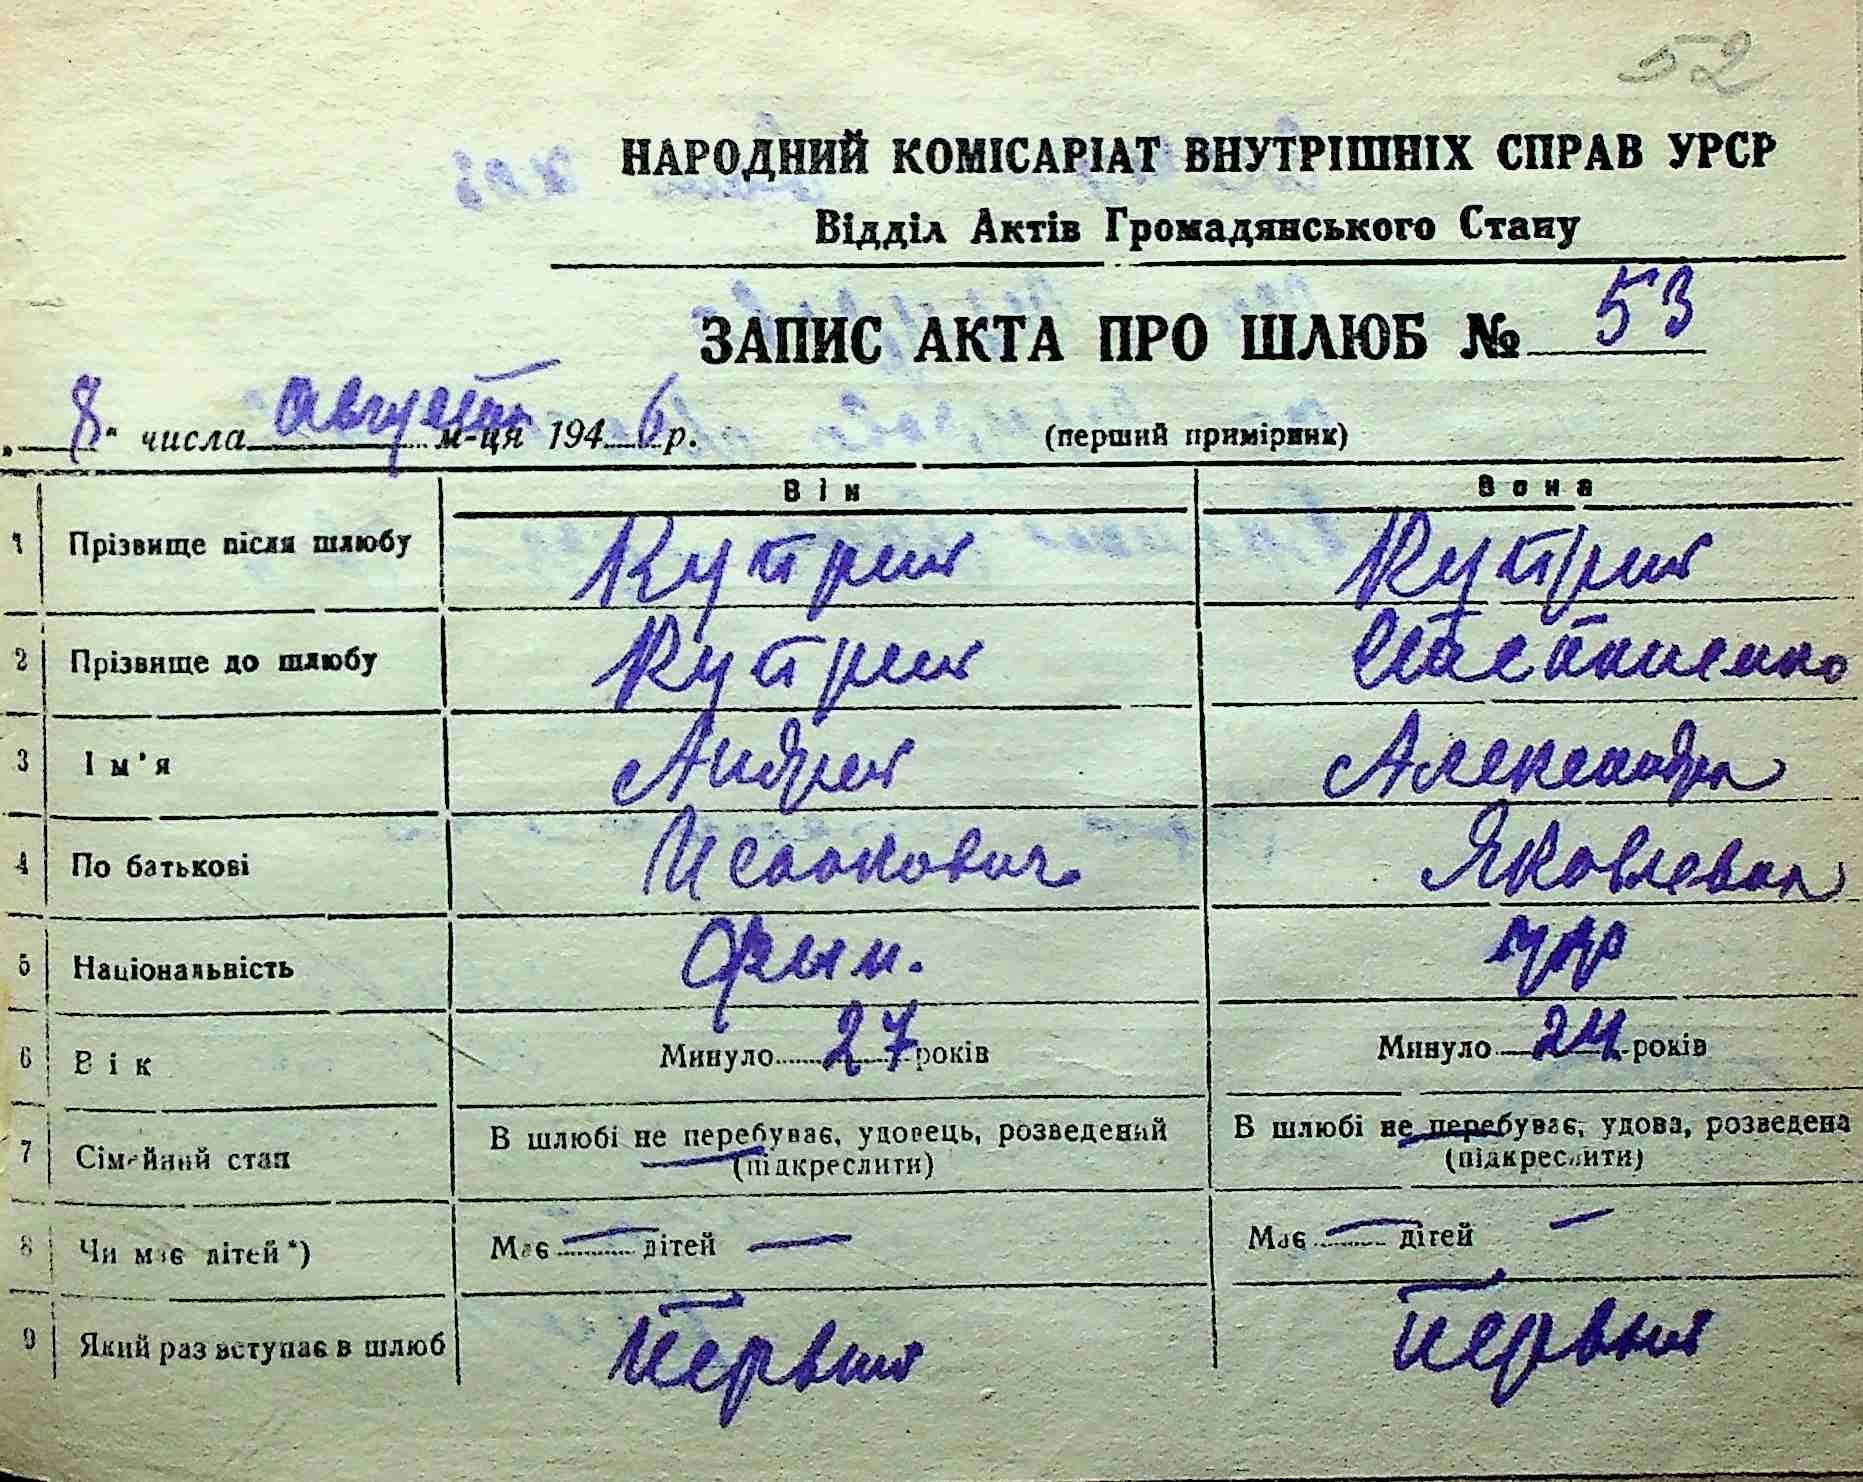 52
НАРОДНИЙ КОМІСАРІАТ ВНУТРІШНІХ СПРАВ УРСР
Відділ Актів Громадянського Стану
ЗАПИС АКТА ПРО ШЛЮБ № 53
„8“ числа августа м-ця 1946 р. (перший примірник)
Він Вона
1 Прізвище після шлюбу Кутрик Кутрик
2 Прізвище до шлюбу Кутрик
3 Ім'я Андрей Александра
4 По батькові Исаакович Яковлевна
5 Національність укр
6 Вік Минуло 27 років Минуло 24 років
7 Сімейний стан В шлюбі не перебуває, удовець, розведений (підкреслити) В шлюбі не перебуває, удова, розведена (підкреслити)
8 Чи має дітей*) Має — дітей — Має — дітей —
9 Який раз вступає в шлюб Первый Первый